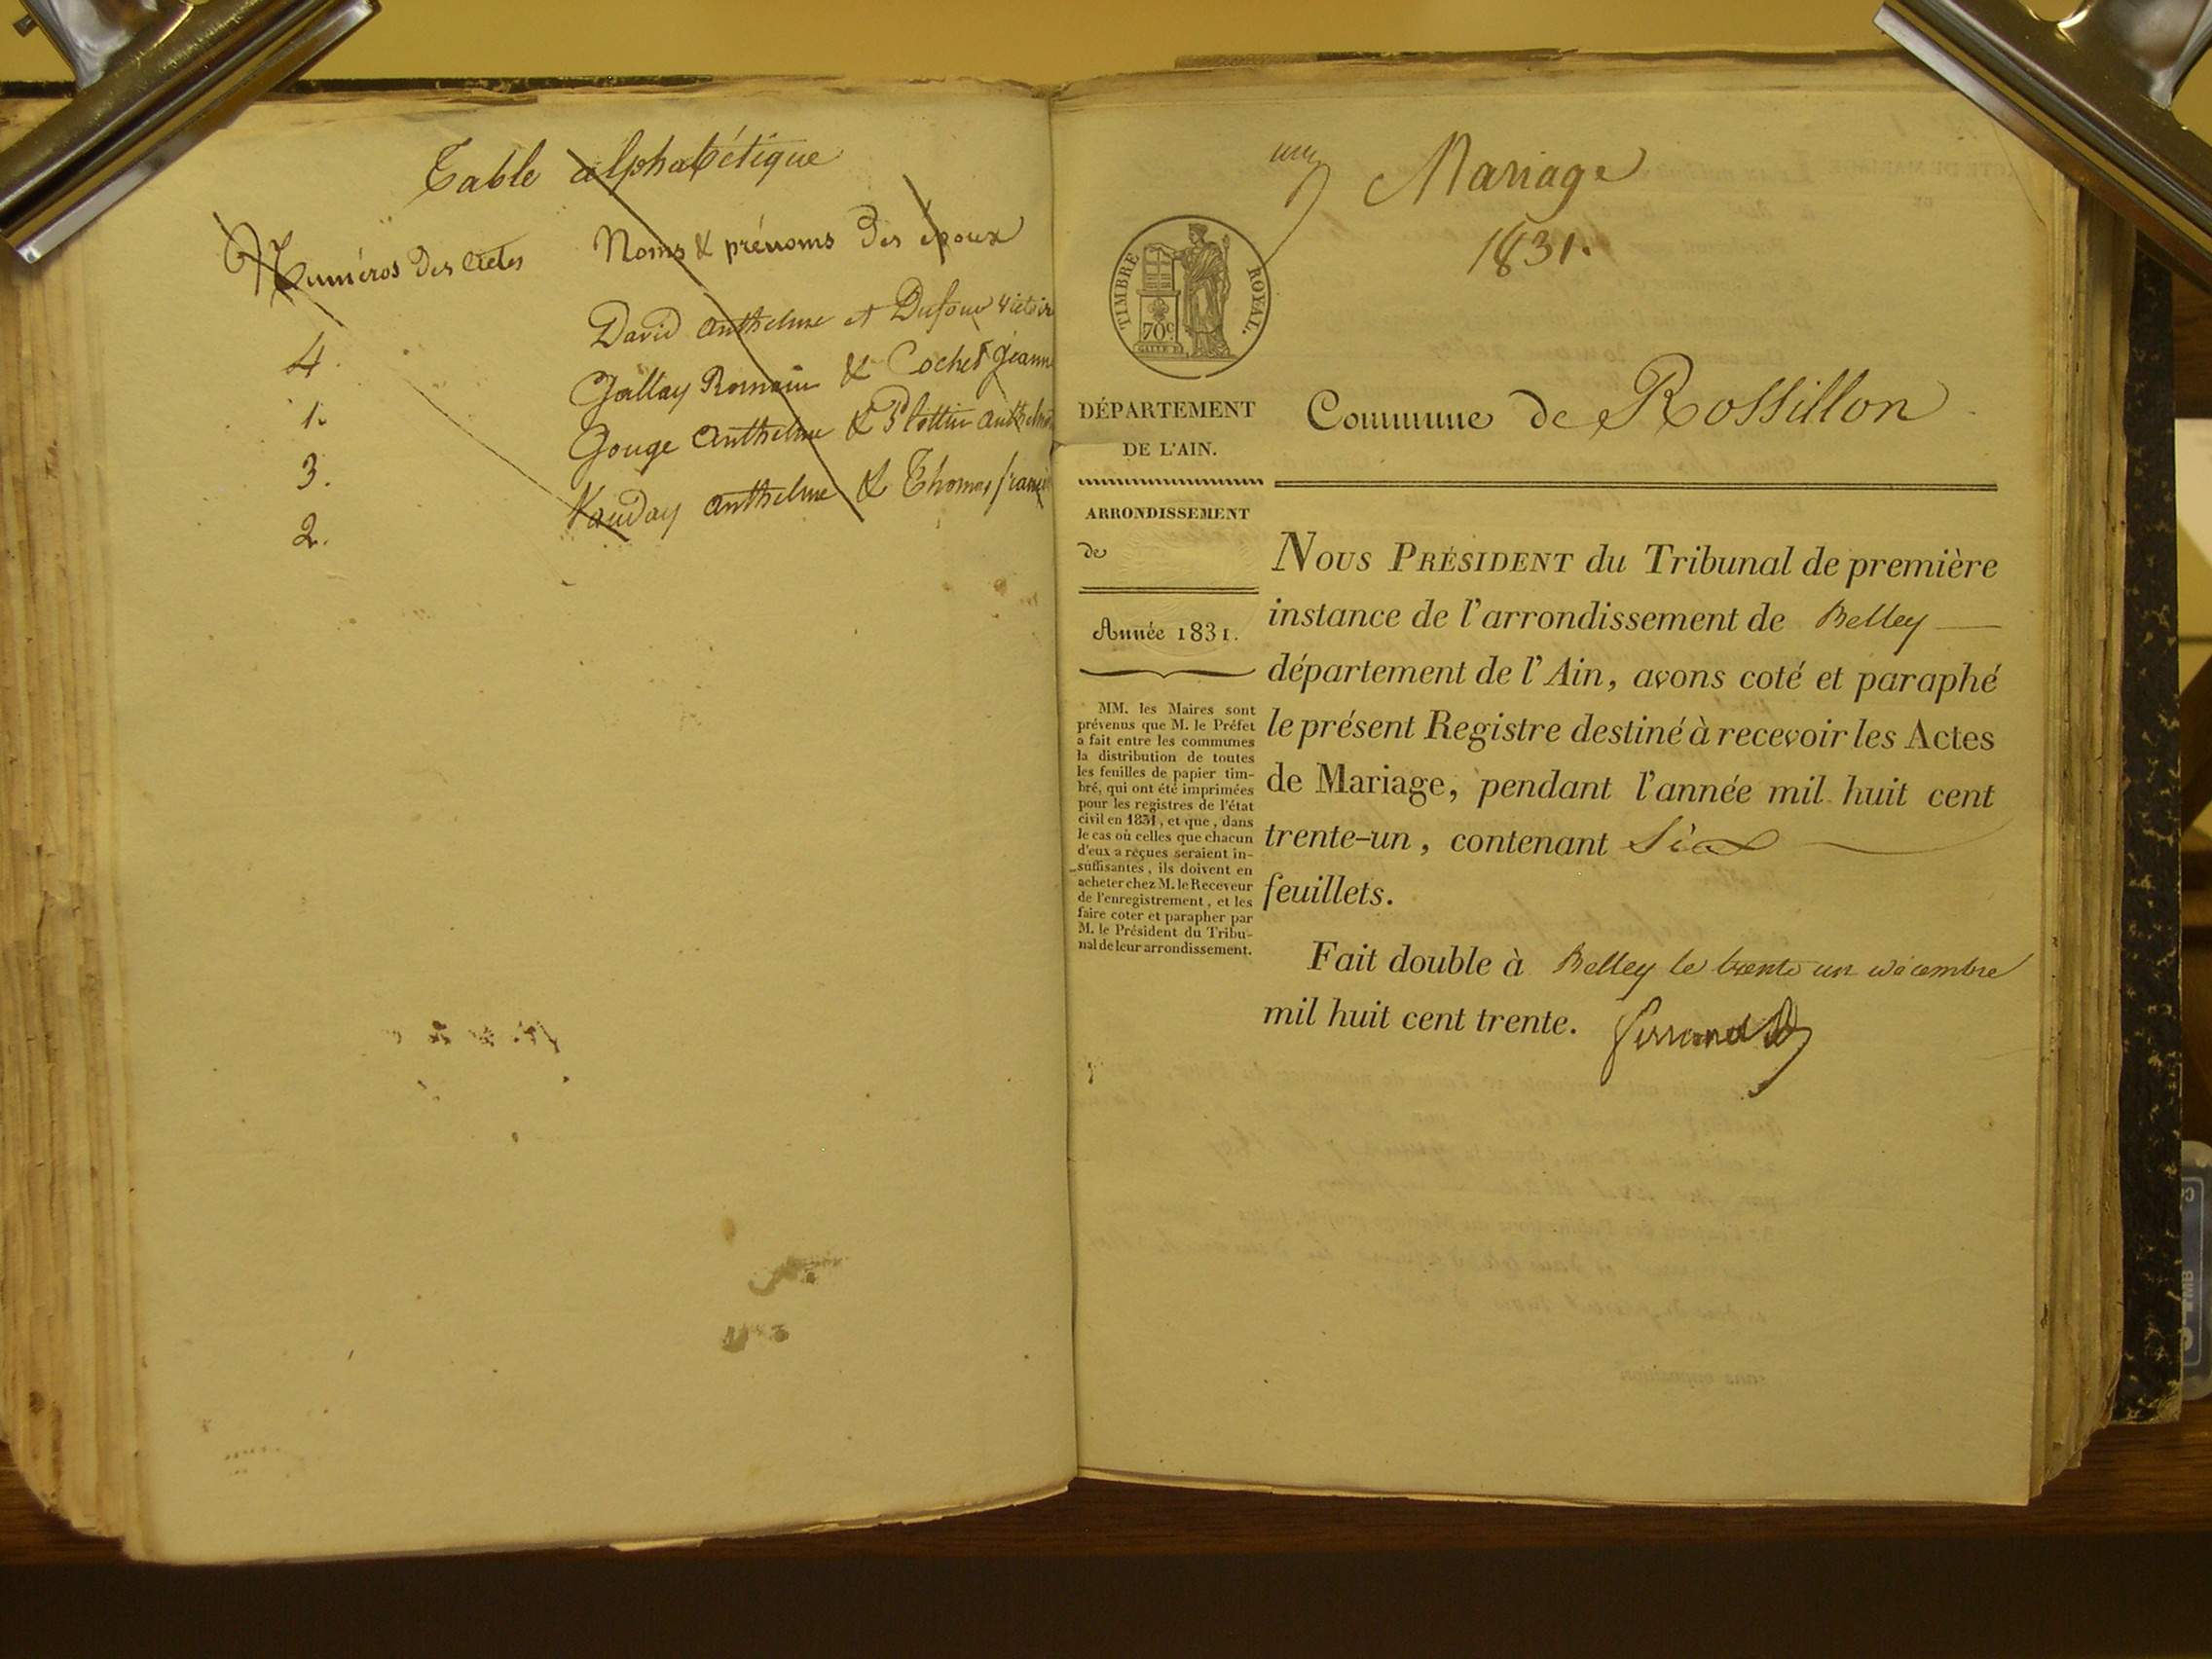 Table alphabétique
Numéros des actes Noms & prénoms des époux
4. David Anthelme et Dufour Victoire
1. Jallay Romain & Cochet Jeanne
3. Gouge Anthelme & Plottin Anthelme
2. Vauday Anthelme & Thomas
un
Mariage
1831.
TIMBRE ROYAL.
70c
DÉPARTEMENT
DE L'AIN.
Commune de Rossillon
ARRONDISSEMENT
de
Année 1831.
MM. les Maires sont
prévenus que M. le Préfet
a fait entre les communes
la distribution de toutes
les feuilles de papier tim-
bré, qui ont été imprimées
pour les registres de l'état
civil en 1831, et que, dans
le cas où celles que chacun
d'eux a reçues seraient in-
suffisantes, ils doivent en
acheter chez M. le Receveur
de l'enregistrement, et les
faire coter et parapher par
M. le Président du Tribu-
nal de leur arrondissement.
NOUS PRÉSIDENT du Tribunal de première
instance de l'arrondissement de Belley
département de l'Ain, avons coté et paraphé
le présent Registre destiné à recevoir les Actes
de Mariage, pendant l'année mil huit cent
trente-un, contenant Six
feuillets.
Fait double à Belley le trente un décembre
mil huit cent trente.